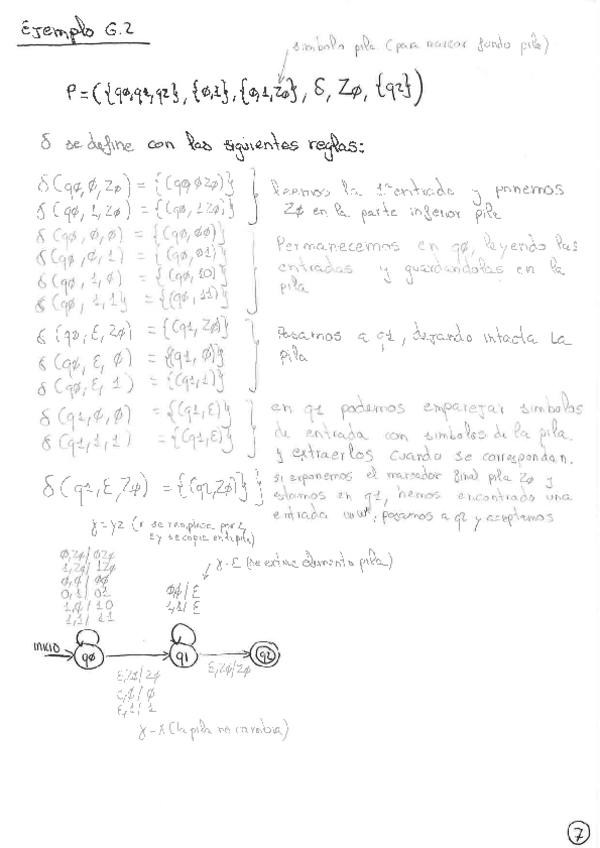 Ejemplo 6.2
símbolo pila (para marcar fondo pila)
P = ({qø,q1,q2}, {ø,1}, {ø,1,Zø}, δ, Zø, {q2})
δ se define con las siguientes reglas:
δ(qø, ø, Zø) = {(qø, øZø)}
δ(qø, 1, Zø) = {(qø, 1Zø)}
leemos la 1ª entrada y ponemos
Zø en la parte inferior pila
δ(qø, ø, ø) = {(qø, øø)}
δ(qø, ø, 1) = {(qø, ø1)}
δ(qø, 1, ø) = {(qø, 1ø)}
δ(qø, 1, 1) = {(qø, 11)}
Permanecemos en qø, leyendo las
entradas y guardandolas en la
pila
δ(qø, ε, Zø) = {(q1, Zø)}
δ(qø, ε, ø) = {(q1, ø)}
δ(qø, ε, 1) = {(q1, 1)}
Pasamos a q1, dejando intacta la
pila
δ(q1, ø, ø) = {(q1, ε)}
δ(q1, 1, 1) = {(q1, ε)}
en q1 podemos emparejar simbolos
de entrada con simbolos de la pila.
y extraerlos cuando se correspondan.
δ(q1, ε, Zø) = {(q2, Zø)}
si exponemos el marcador final pila Zø y
estamos en q1, hemos encontrado una
entrada wwᴿ, pasamos a q2 y aceptamos
γ = YZ (x se reemplaza por Z,
y se copia en la pila)
ø,Zø/øZø
1,Zø/1Zø
ø,ø/øø
ø,1/ø1
1,ø/1ø
1,1/11
γ - ε (se extrae elemento pila)
ø,ø/ε
1,1/ε
INICIO
qø
q1
q2
ε,Zø/Zø
ε,Zø/Zø
ε,ø/ø
ε,1/1
γ - X (la pila no cambia)
7